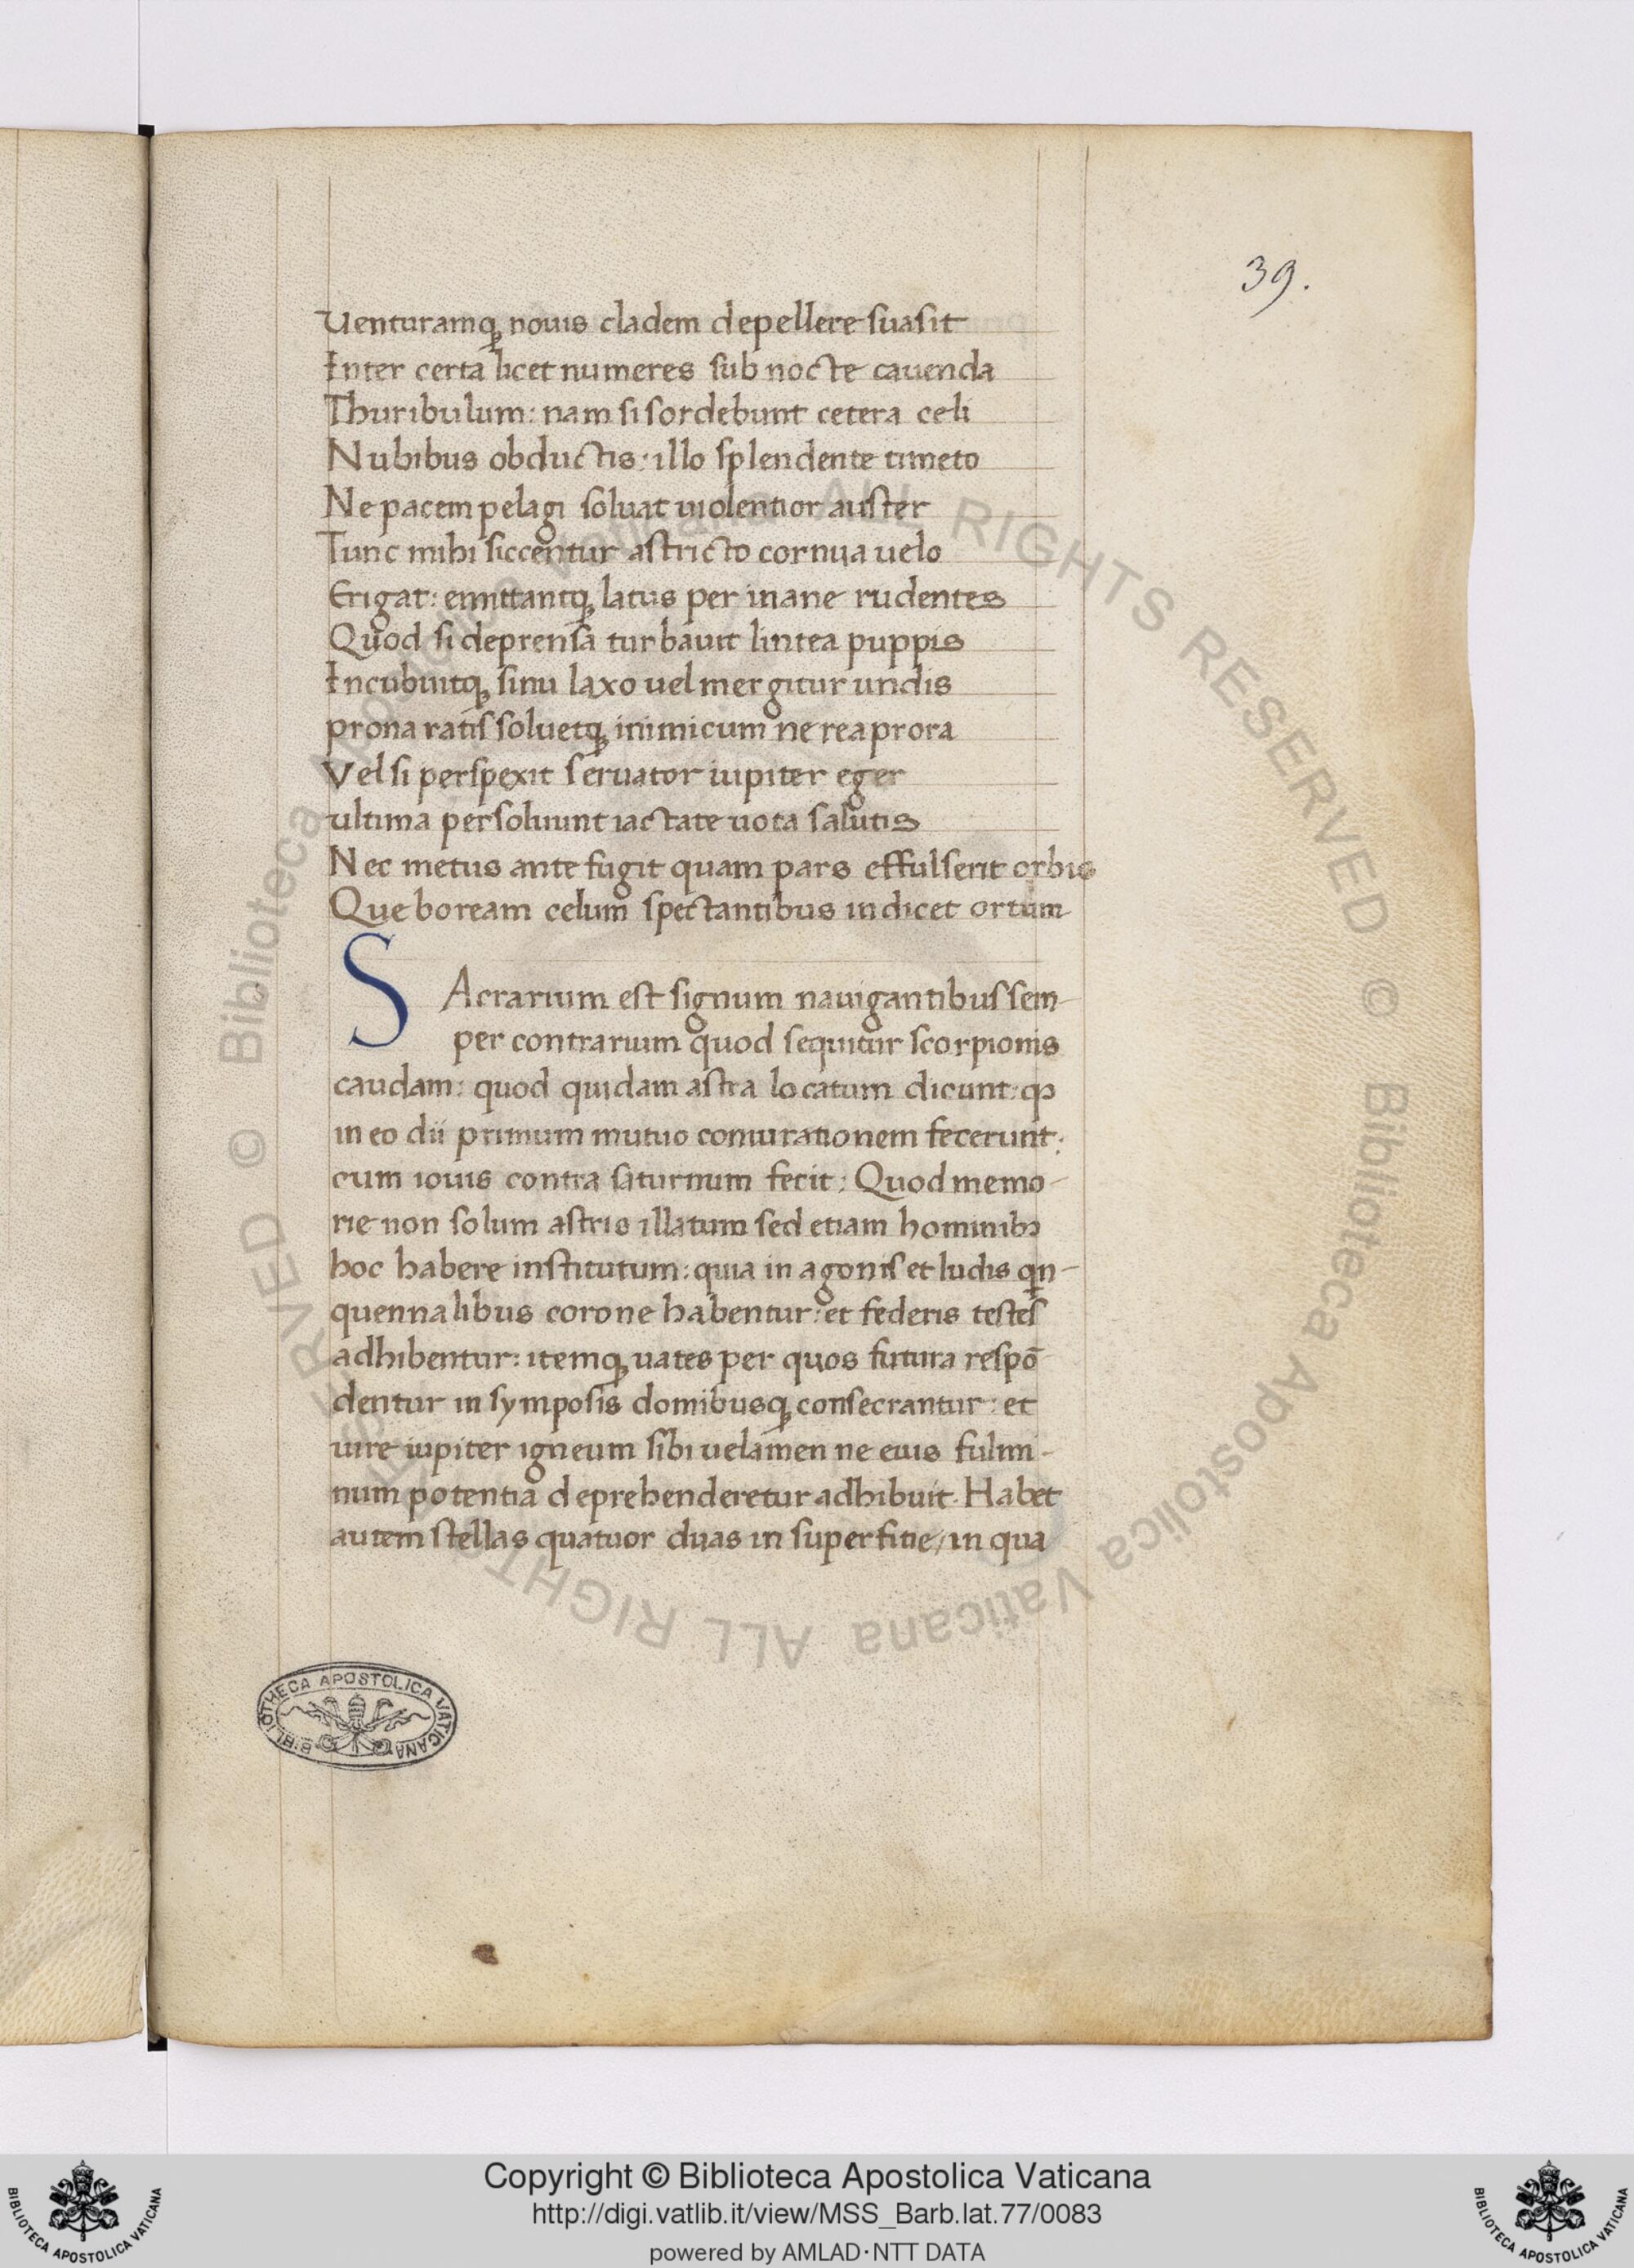 39.
Venturamq; nouis cladem depellere suasit
Inter certa licet numeres sub nocte cauenda
Thuribulum: nam si sordebunt cetera celi
Nubibus obductis: illo splendente timeto
Ne pacem pelagi soluat uiolentior auster
Tunc mihi siccentur astricto cornua uelo
Erigat: emittantq; latus per inane rudentes
Quod si deprensa turbauit lintea puppis
Incubuitq; sinu laxo uel mergitur undis
prona ratis soluetq; inimicum nerea prora
Vel si perspexit seruator iupiter eger
ultima persoluunt iactate uota salutis
Nec metus ante fugit quam pars effulserit orbis
Que boream celum spectantibus indicet ortum
SAcrarium est signum nauigantibus sem-
per contrarium quod sequitur scorpionis
caudam: quod quidam astra locatum dicunt: qꝫ
in eo dii primum mutuo coniurationem fecerunt:
cum iouis contra saturnum fecit: Quod memo-
rie non solum astris illatum sed etiam hominibꝫ
hoc habere institutum: quia in agonis et ludis qn-
quennalibus corone habentur: et federis testes
adhibentur: itemq; uates per quos futura respō
dentur in symposis domibusq; consecrantur: et
uire iupiter igneum sibi uelamen ne eius fulmi-
num potentia deprehenderetur adhibuit. Habet
autem stellas quatuor duas in superfitie/ in qua
BIBLIOTHECA APOSTOLICA VATICANA
© Biblioteca Apostolica Vaticana ALL RIGHTS RESERVED © Biblioteca Apostolica Vaticana ALL RIGHTS RESERVED
Copyright © Biblioteca Apostolica Vaticana
http://digi.vatlib.it/view/MSS_Barb.lat.77/0083
powered by AMLAD·NTT DATA
BIBLIOTECA APOSTOLICA VATICANA
BIBLIOTECA APOSTOLICA VATICANA